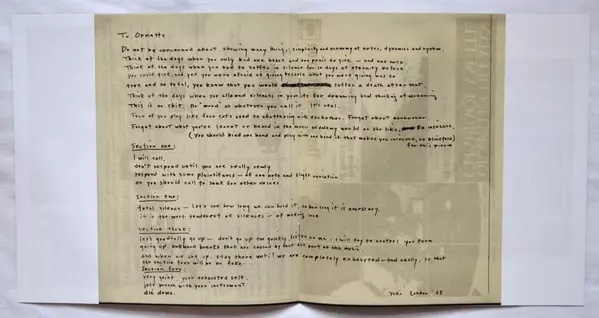 To Ornette
Do not be concerned about showing many things; simplicity and economy of notes, dynamics and rythm.
Think of the days when you only had one heart and one penis to give. - and one voice.
Think of the days when you had to suffer in silence for 10 days of eternity before
you could give, and yet you were afraid of giving because what you were giving was so
true and so total, you knew that you would suffer a death after that.
Think of the days when you allowed silences in your life for dreaming
This is no shit. No 'mood' or whatever you call it. It's real.
Four of you play like four cats used to chattering with each other. Forget about
Forget about what you've learnt or heard in the music academy world or the like, insecure,
(You should bind one hand and play with one hand if that makes you insecure, or blindfold)
for this piece
Section one:
I will call,
don't respond until you are really ready
respond with same plaintiveness - of one note and slight variation
or you should call to seek for other voices
Section two:
total silence - let's see how long we can hold it, so long it is necessary.
it is the most tenderest of silences - of making love
Section three:
let's gradually go up - don't go up too quickly, listen to me. I will try to control you from
going up. Awkward breaks that are caused by fear are part of the music
and when we are up. stay there until we are completely exhausted - and really, so that
the section four will be no fake.
Section four:
very quiet. your exhausted self.
just breath with your instrument
die down.
Yoko London '68